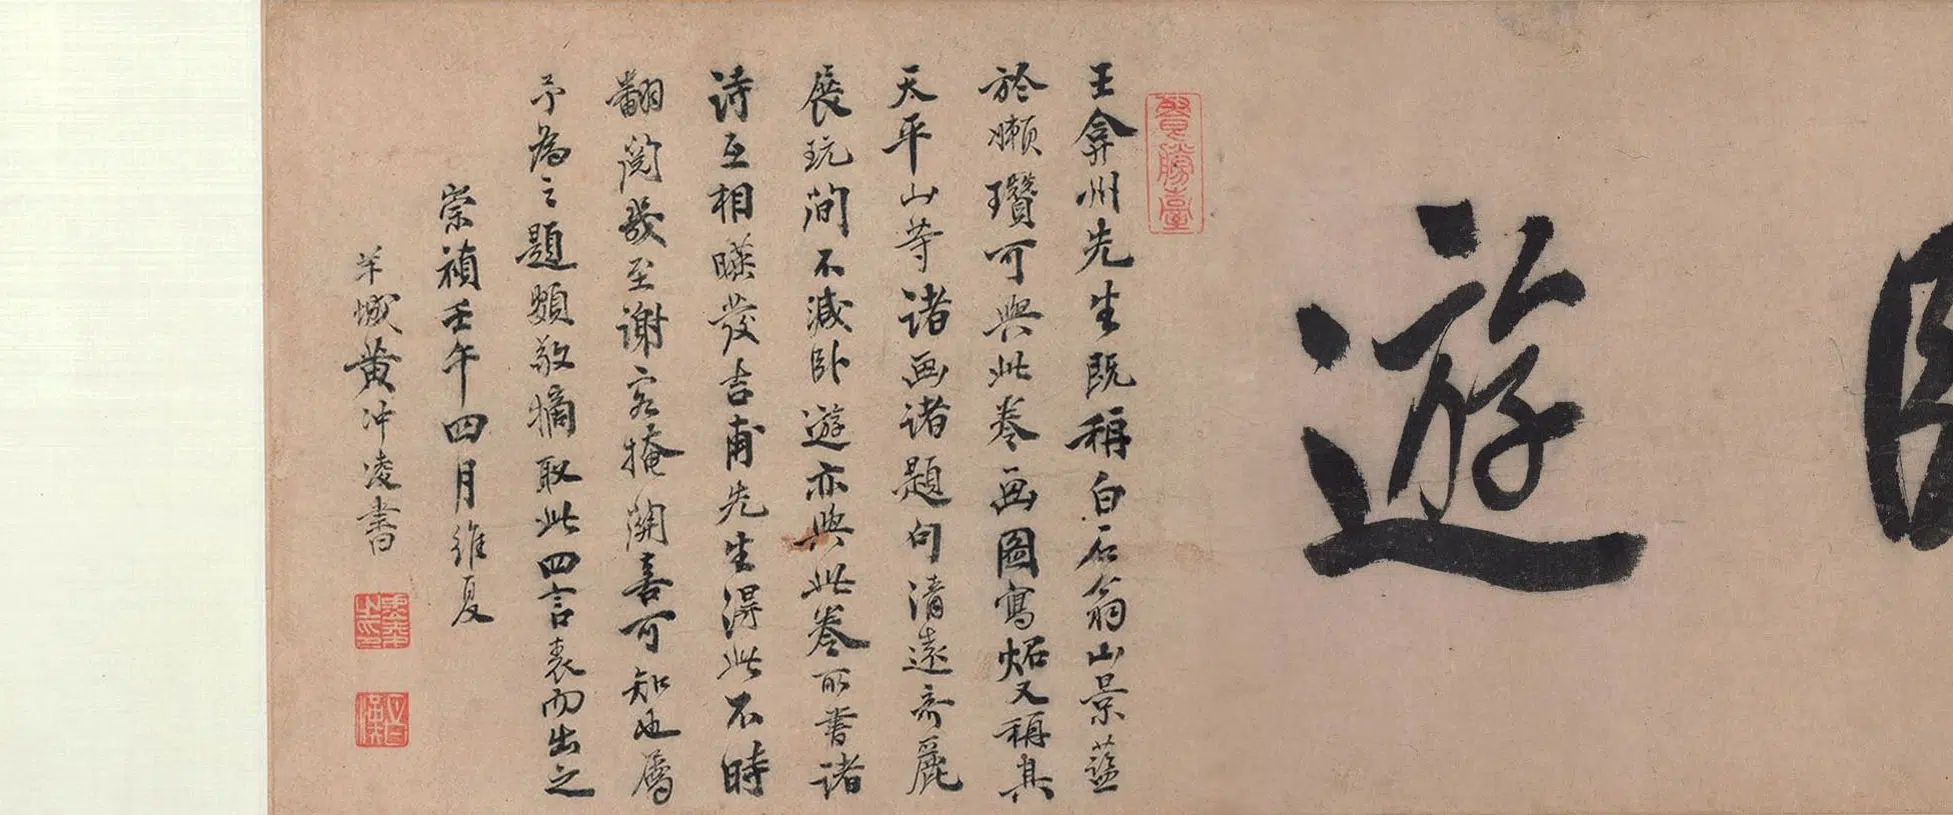 臥
遊
賀勝臺
王弇州先生既稱白石翁山景蓝
於嬾瓚可與此卷画圖寫炤又稱其
天平山等诸画诸題句清遠奇麗
展玩间不减卧遊亦與此卷所書诸
诗互相暎發吉甫先生得此不時
翻閲歌至谢客掩關喜可知也属
予為之題顏敬摘取此四言表而出之
崇禎壬午四月維夏
羊城黄冲凌書